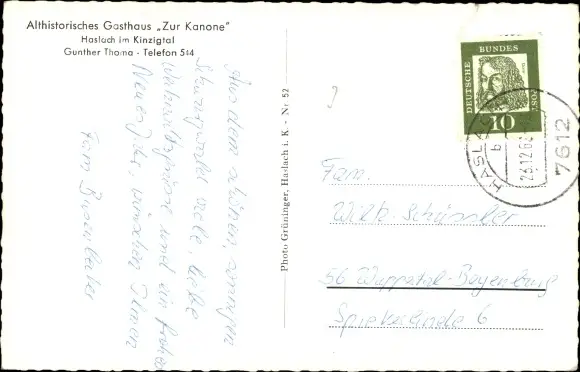 Althistorisches Gasthaus „Zur Kanone"
Haslach im Kinzigtal
Gunther Thoma - Telefon 544
Aus dem schönen, sonnigen
Schwarzwald viele, liebe
Weihnachtsgrüsse und ein frohes
Neues Jahr, wünschen Ihnen
Fam.
Photo Grüninger, Haslach i. K. - Nr 52
DEUTSCHE
BUNDES
POST
10
HASLACH
b
7612
Fam.
Wilh. Schüssler
56 Wuppertal-Beyenburg
6